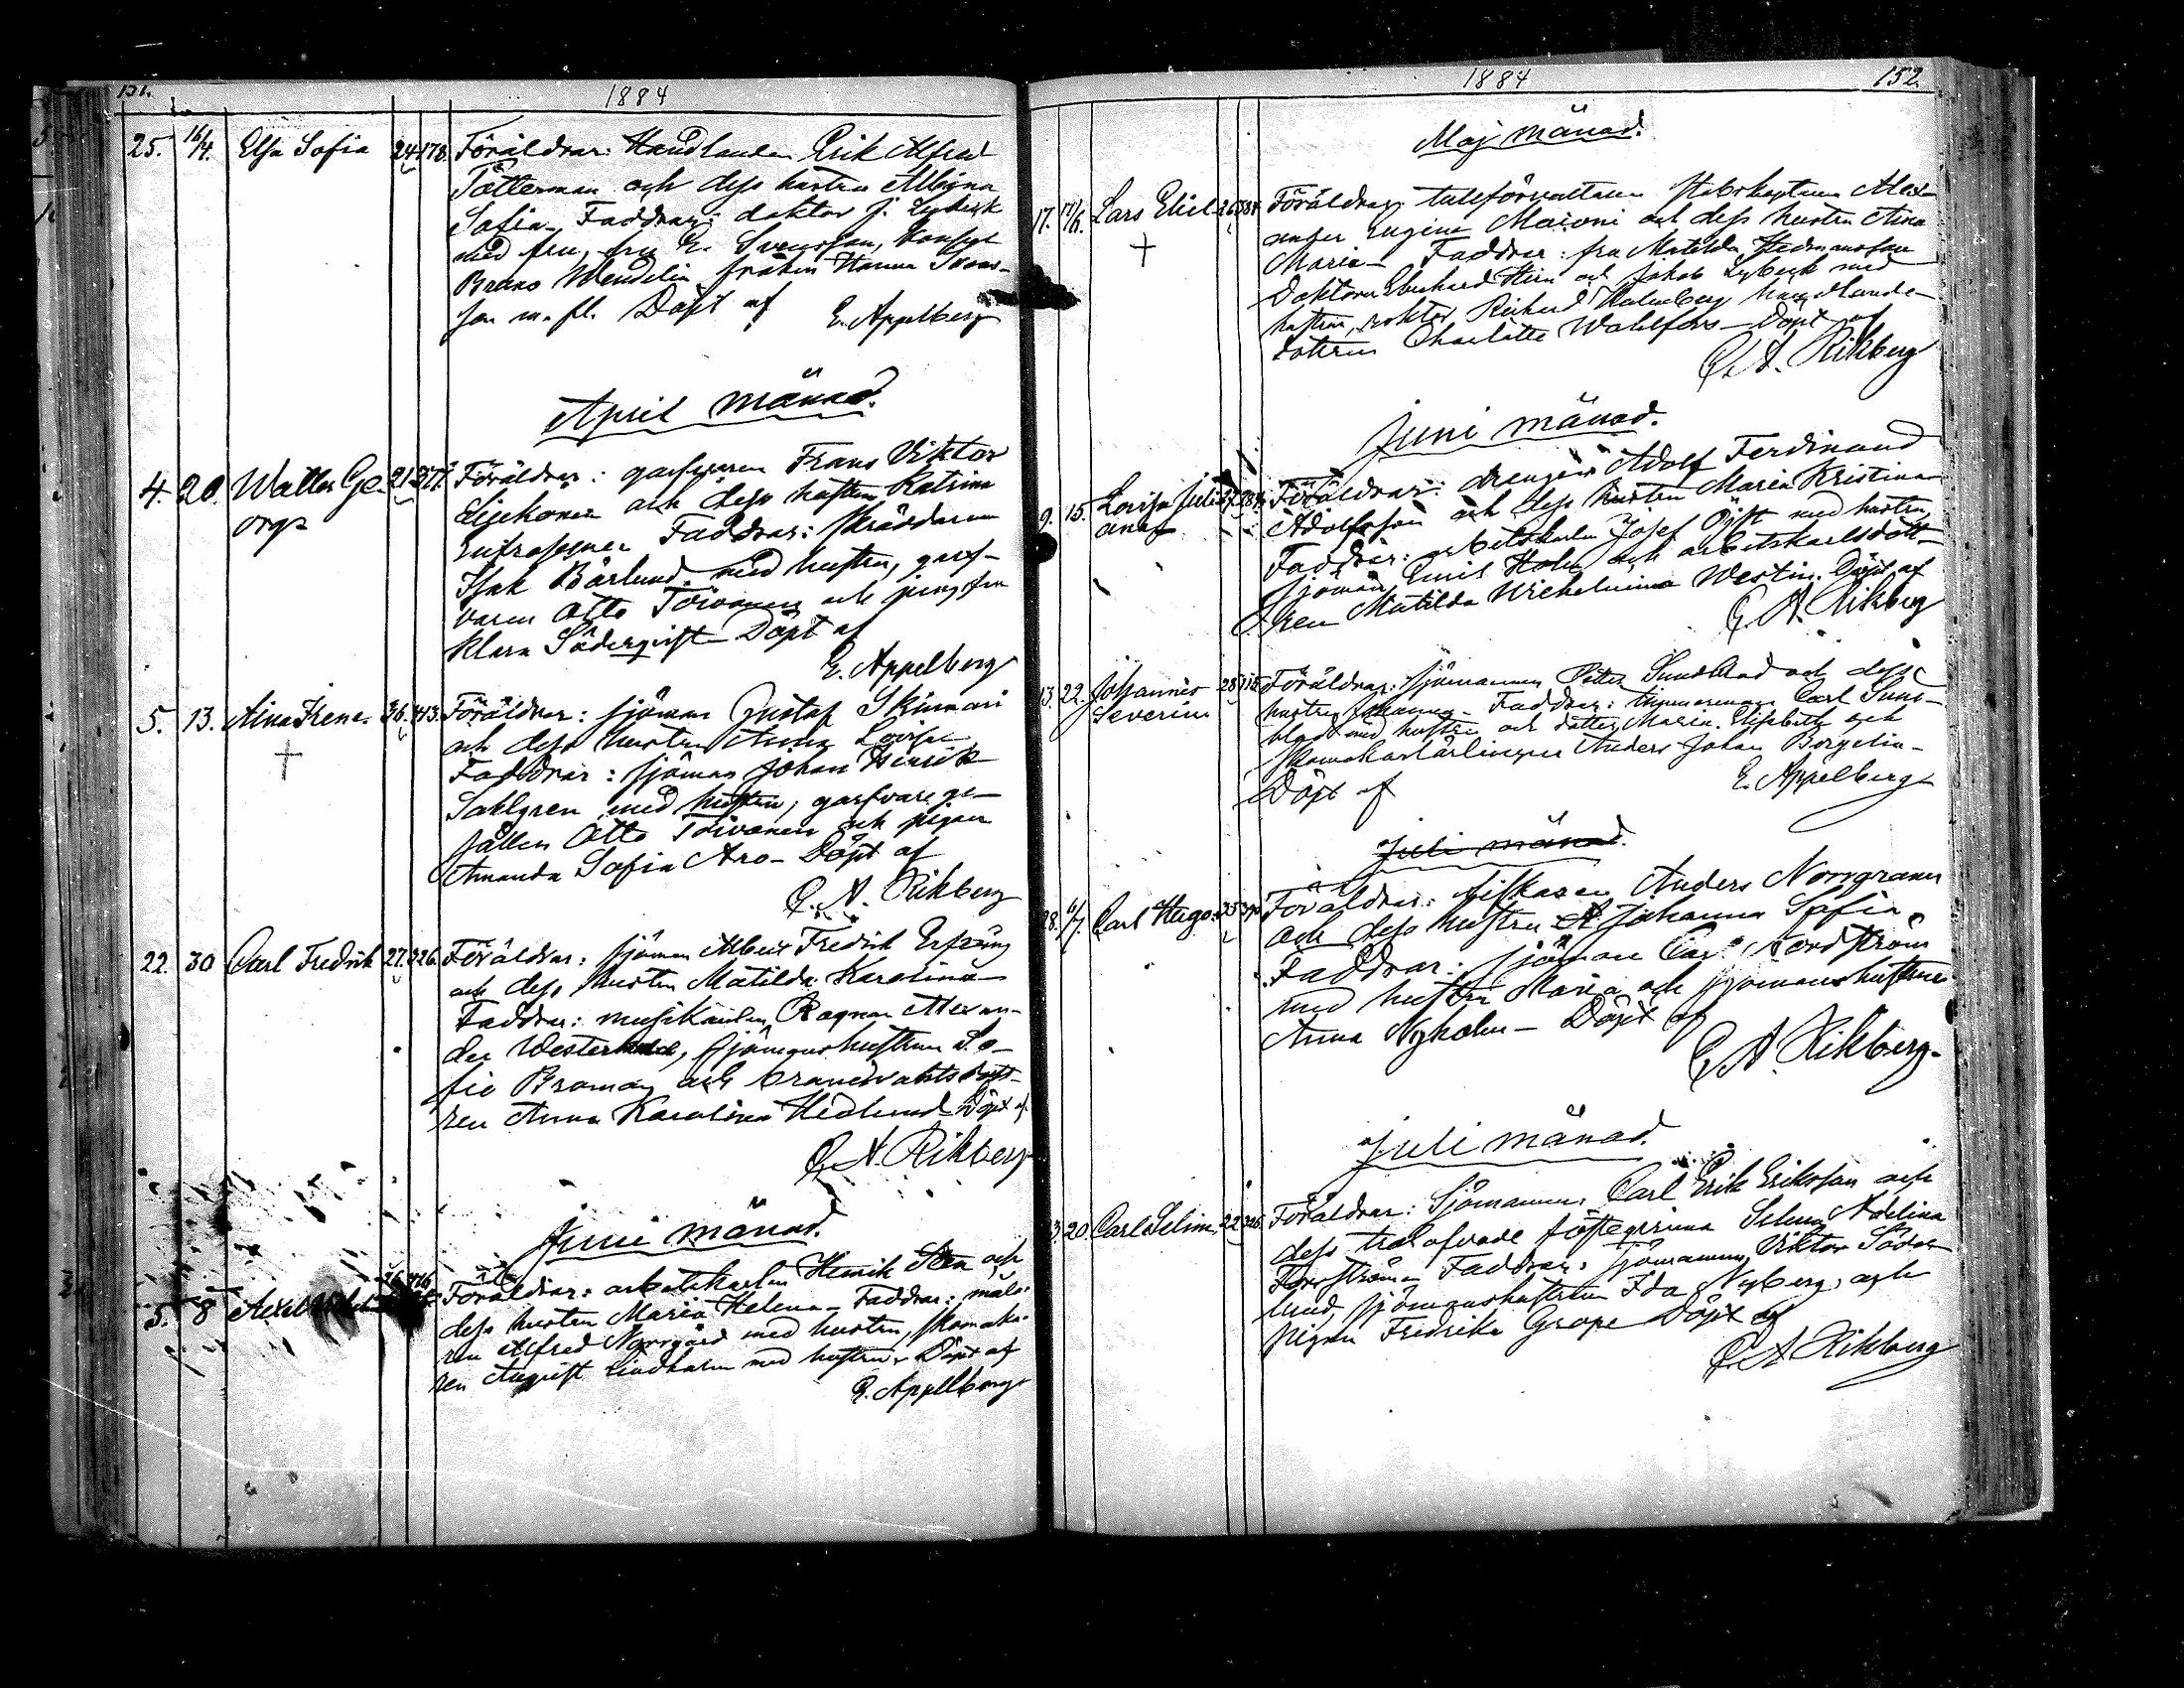 151.
1884
25. 16/4. Elsa Sofia 24. 178. Föräldrar: Handlanden Erik Alfred
Tötterman och dess hustru Albina
Sofia. Faddrar: doktor J. Lybeck
med fru, fru E. Svensson, konsul
Bruno Wendelin fröken Hanna Svens-
son m. fl. Döpt af E. Appelberg
April månad.
4. 20. Walter Ge- 21. Föräldrar: garfvaren Frans Viktor
orgs och dess hustru Katrina
Faddrar: skräddaren
Isak Bärlund med hustru, garf-
varen Otto Toivonen och jungfru
Klara Söderqvist. Döpt af
E. Appelberg
5. 13. Aina Irene. 36. 413. Föräldrar: sjöman Gustaf Skinnari
och dess hustru Anna Lovisa
Faddrar: sjöman Johan Henrik
Sahlgren med hustru, garfvarege-
sällen Otto Toivonen och pigan
Amanda Sofia Aro. Döpt af
C. A. Rikberg
22. 30 Carl Fredrik 27. 226. Föräldrar: sjöman Albert Fredrik
och dess hustru Matilda Karolina
Faddrar: musikanten Ragnar Alexan-
der sjömanshustrun So-
fie Broman och brandvaktsdott-
ren Anna Karolina Hedlund Döpt af
C. A. Rikberg
Juni månad.
5. 8 Axel Föräldrar: arbetskarlen Henrik Sten och
dess hustru Maria Helena. Faddrar: måla-
ren Alfred Norrgård med hustru, skomaka-
ren August Lindholm med hustru. Döpt af
E. Appelberg
1884
152.
Maj månad.
17. 17/6. Lars Eliel 26. Föräldrar: tullförvaltaren stabskaptenen Alex-
ander Eugene Maconi och dess hustru Aina
Maria. Faddrar: fru Matilda Hedmansson
Doktorn Eberhard Hirn och Jakob Lybeck med
hustru, rektor Richard Malmberg handlande-
dottren Charlotte Wahlfors. Döpt af
C. A. Rikberg
Juni månad.
9. 15. Lovisa Juli- 27. Föräldrar: drengen Adolf Ferdinand
ana Adolfsson och dess hustru Maria Kristina
Faddrar: arbetskarlen Josef Öist med hustru,
sjöman Emil Holm och arbetskarlsdott-
ren Matilda Wilhelmina Westin. Döpt af
C. A. Rikberg
13. 22. Johannes 28. 115. Föräldrar: sjömannen Petter Sundblad och dess
Severin hustru Johanna. Faddrar: timmerman Carl Sund-
blad med hustru och dotter Maria Elisabeth och
skomakarlärlingen Anders Johan Borgelin.
Döpt af E. Appelberg
Juli månad.
28. 6/7. Carl Hugo. Föräldrar: fiskaren Anders Norrgrann
och dess hustru Johanna Sofia
Faddrar: sjöman Carl Nordström
med hustru Maria och sjömanshustrun
Anna Nyholm. Döpt af
C. A. Rikberg.
Juli månad.
3. 20. Carl Selim. 22. 326. Föräldrar: Sjömannen Carl Erik Eriksson och
dess trolofvade fästeqvinna Selma Adelina
Forsström Faddrar: sjömannen Viktor Söder-
lund, sjömanshustrun Ida Nyberg, och
pigan Fredrika Grope Döpt af
C. A. Rikberg